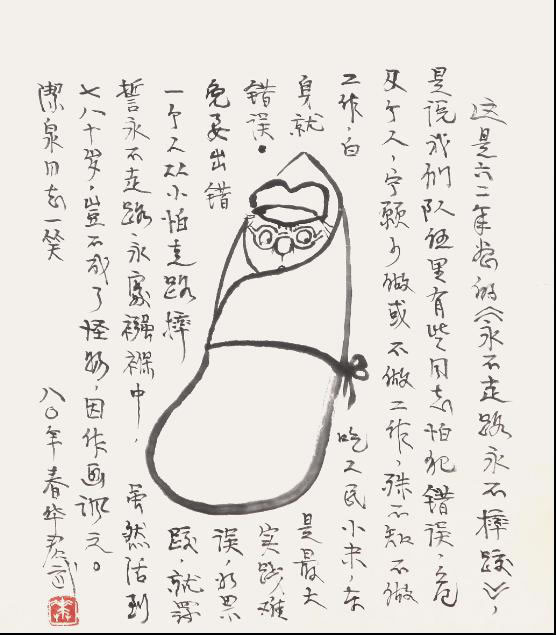 这是六二年画的《永不走路永不摔跤》，
是说我们队伍里有些同志怕犯错误，危
及个人，宁愿少做或不做工作，殊不知不做
工作，白吃人民小米，本
身就是最大
错误。实践难
免要出错误，如果
一个人从小怕走路摔跤，就罚
誓永不走路永裹襁褓中，虽然活到
七八十岁，豈不成了怪物，因作画讽之。
潔泉同志一笑 八〇年春华君武